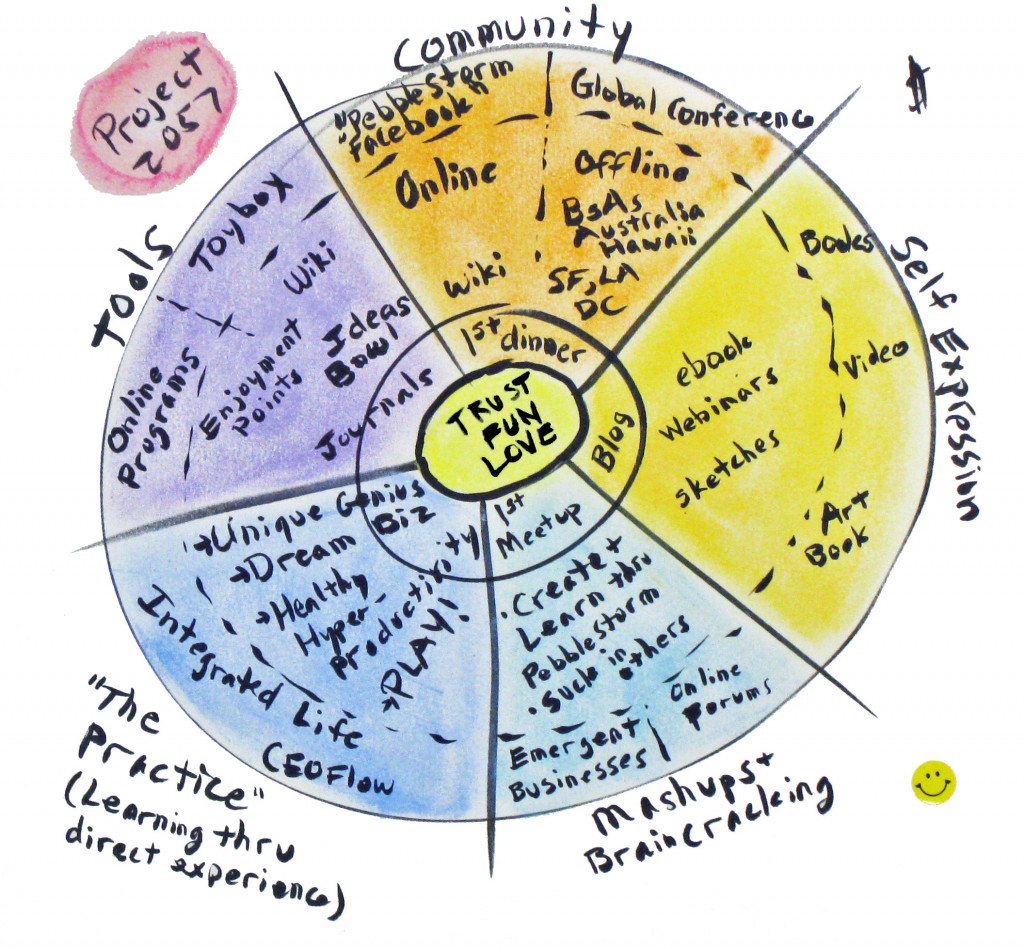 Project
2057
Community
$
"PebbleStorm
Facebook"
Online
Wiki
Global Conference
Offline
BsAs
Australia
Hawaii
SF, LA
DC
1st dinner
Self Expression
Books
Video
Art
Book
ebook
Webinars
sketches
Blog
Tools
Toybox
Wiki
Ideas
Bowl
Online
Programs
Enjoyment
Points
Journals
TRUST
FUN
LOVE
→Unique Genius
Biz
→Dream
→Healthy
Hyper-
productivity
→PLAY!
Integrated Life
CEOFlow
"The
Practice"
(Learning thru
direct experience)
1st
Meetup
· Create +
Learn thru
PebbleStorm
· Suck in
others
Online
Forums
Emergent
Businesses
Mashups +
Braincracking